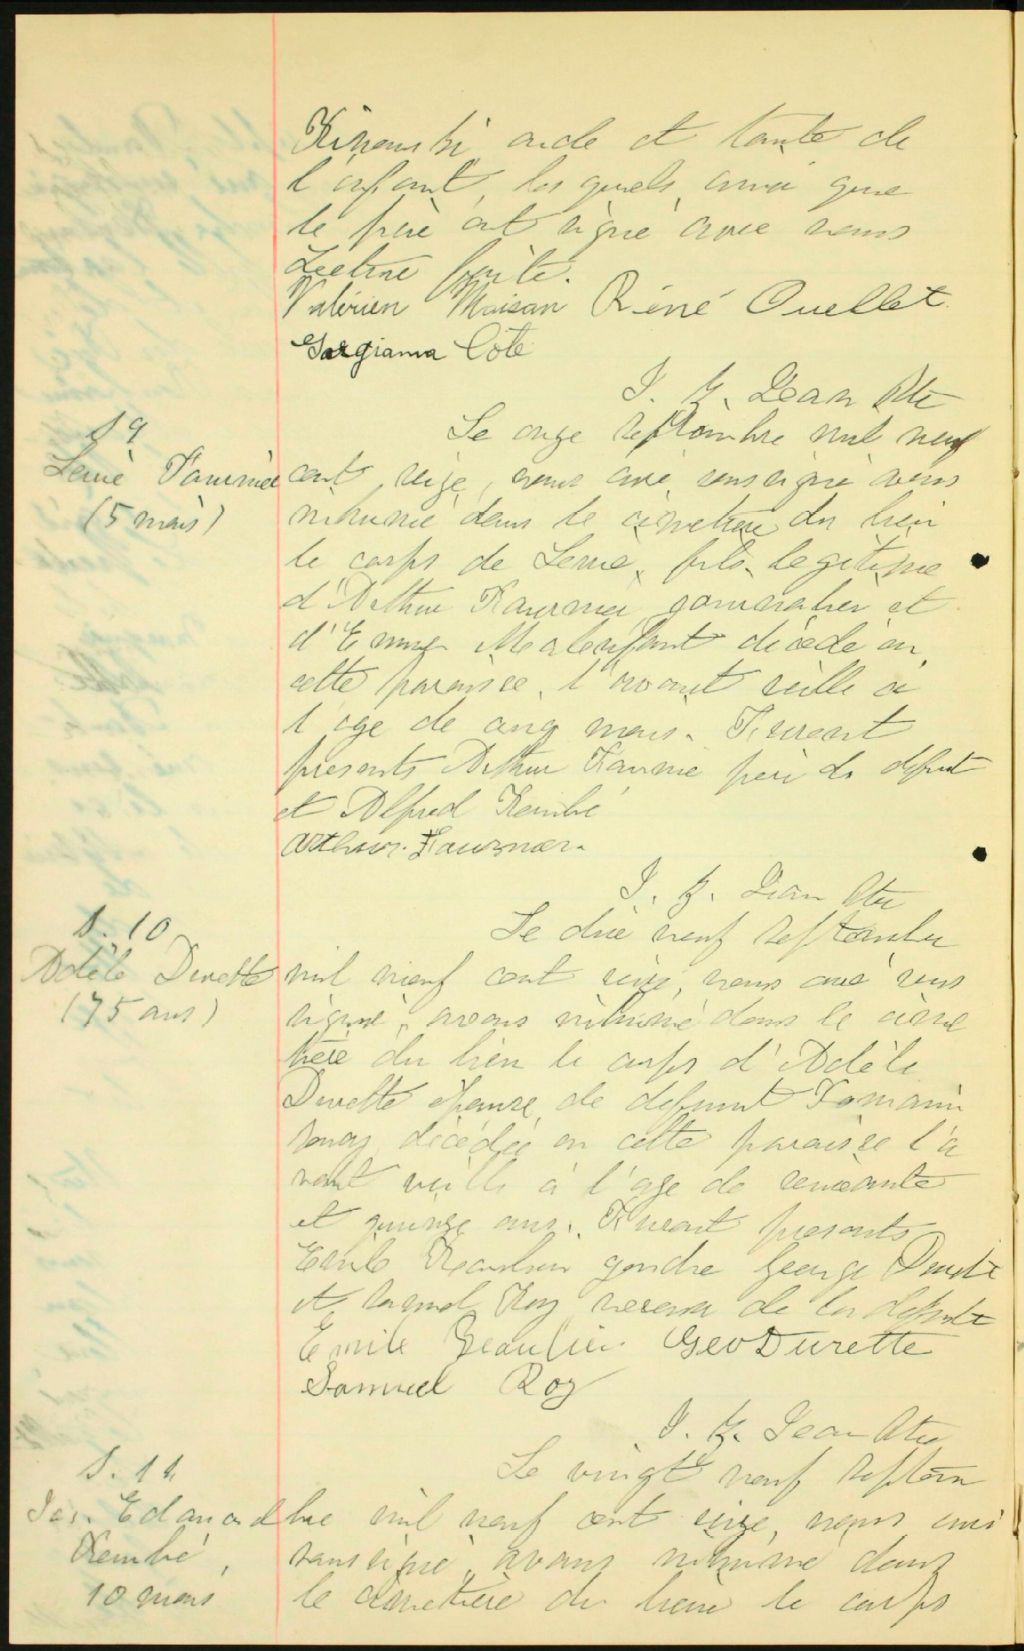 Rimouski oncle et tante de
l'enfant, lesquels, ainsi que
le père ont signé avec nous
Lecture faite.
Valérien Moisan Réné Ouellet.
Gorgianna Côté
J. Jean Ptre
S 9
Fournier
(5 mois)
Le onze septembre mil neuf
cent seize, nous curé soussigné avons
inhumé dans le cimetière du lieu
le corps de fils légitime
d'Arthur Fournier journalier et
d' Malenfant décédé en
cette paroisse, l'avant veille à
l'age de cinq mois. Furent
présents Arthur Fournier père du défunt
et Alfred
Arthur Fournier.
J. Jean Ptre
S. 10
Adèle Durette
(75 ans)
Le dix neuf septembre
mil neuf cent seize, nous curé sous
signé, avons inhumé dans le cime
tière du lieu le corps d'Adèle
Durette épouse de défunt
décédée en cette paroisse l'a
vant veille à l'age de soixante
et quinze ans. Furent présents
Emile Beaulieu gendre George Durette
et Samuel Roy neveu de la défunte
Emile Beaulieu Geo Durette
Samuel Roy
J. Jean Ptre
S. 11
Jos. Edouard
10 mois
Le vingt neuf septem
bre mil neuf cent seize, nous curé
soussigné avons inhumé dans
le cimetière du lieu le corps